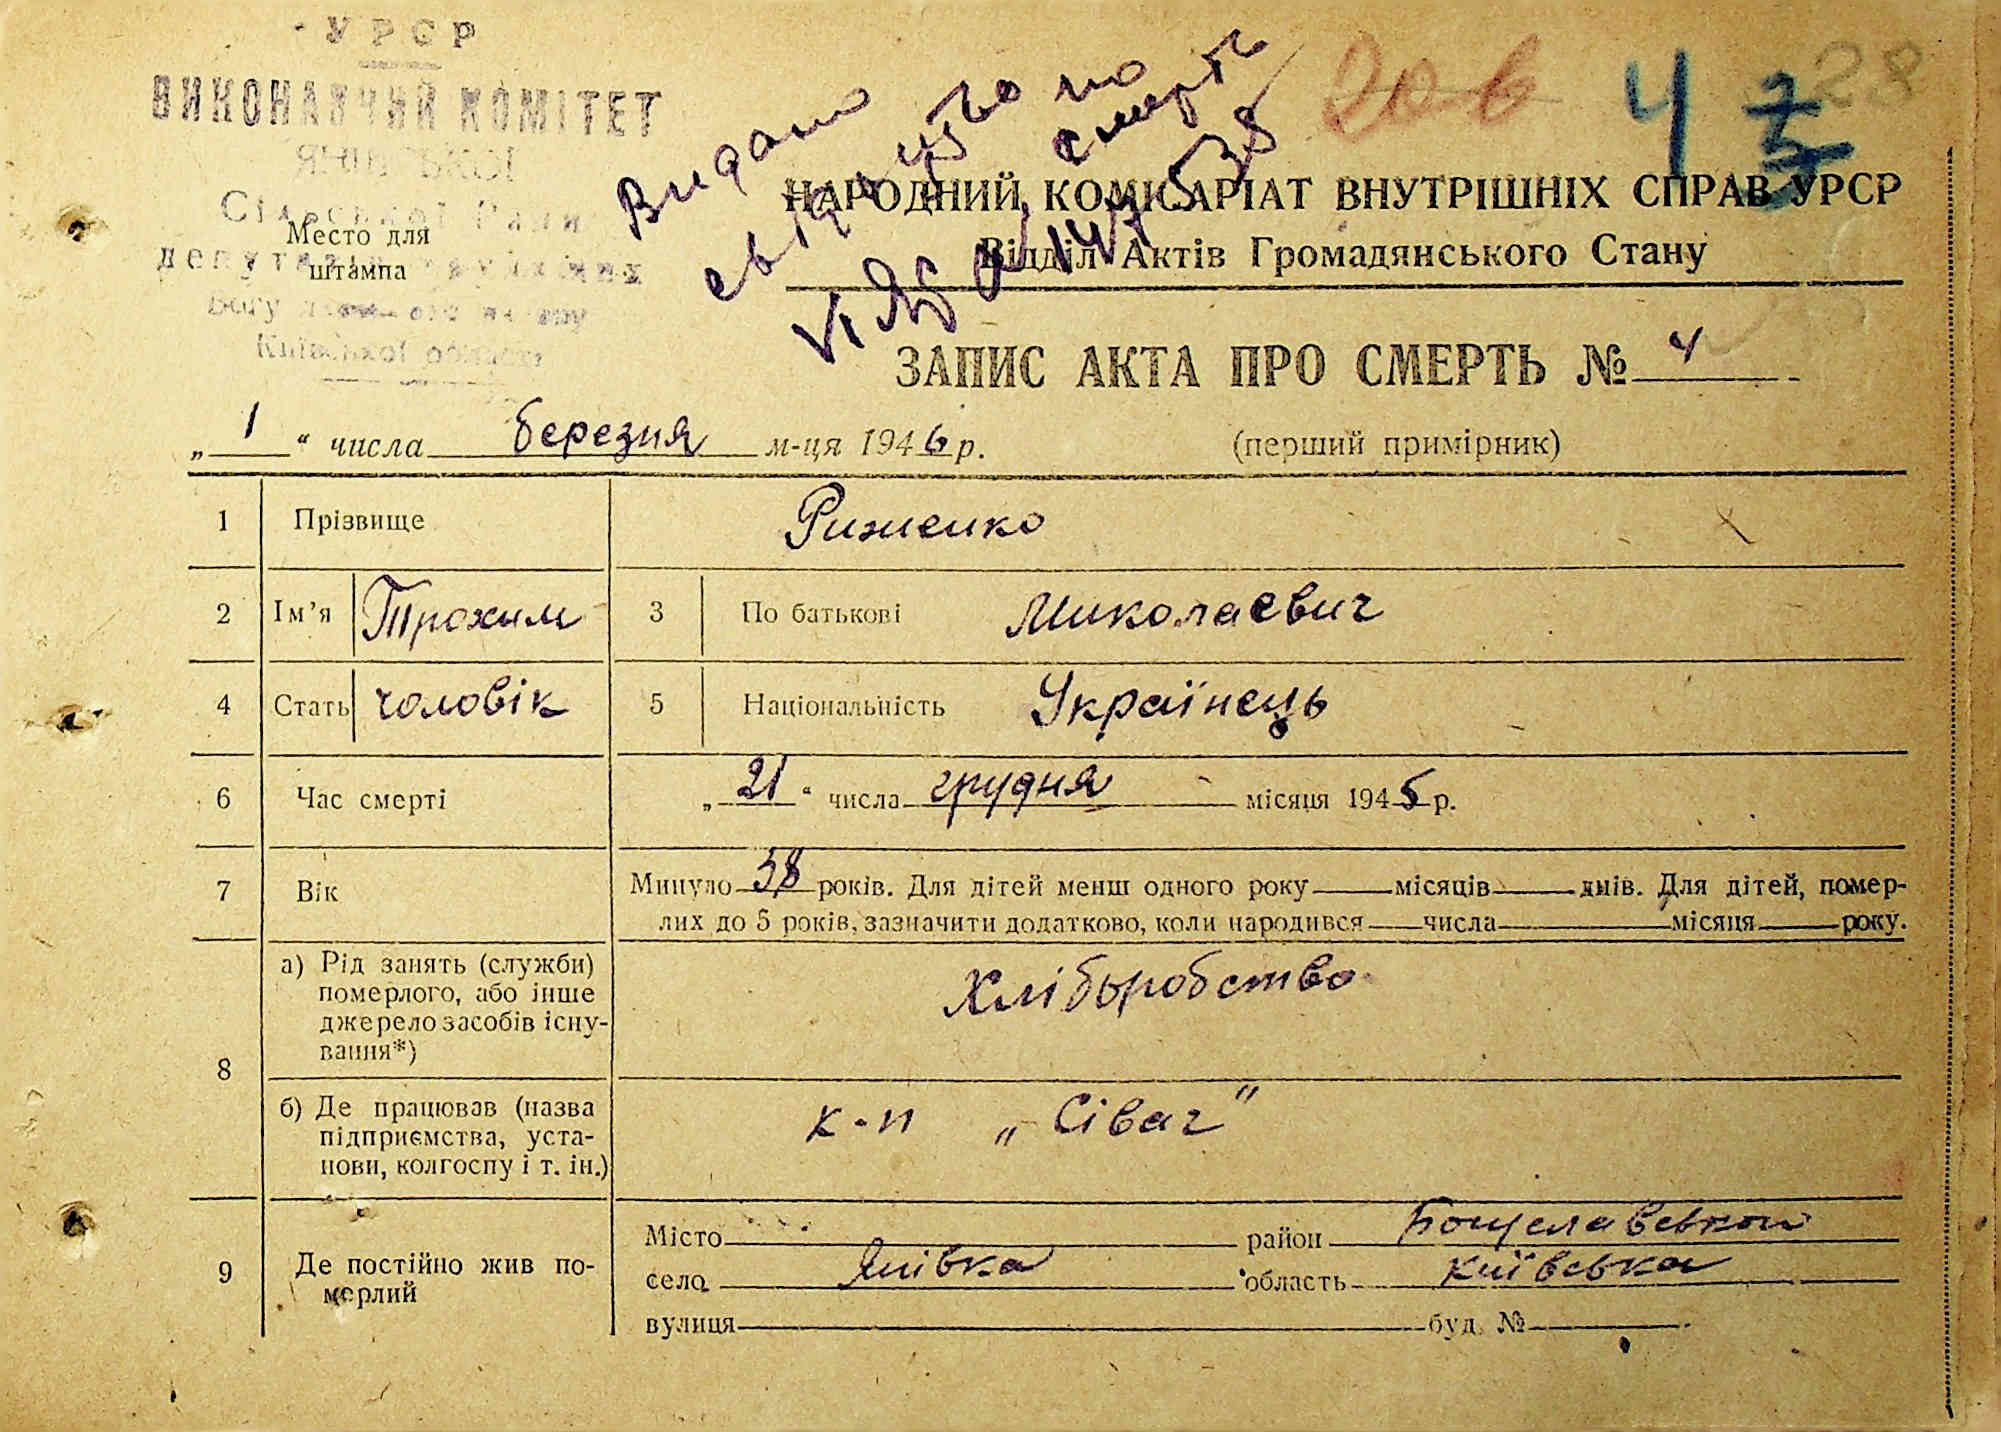 УРСР
ВИКОНАВЧИЙ КОМІТЕТ
ЯНІВСЬКОЇ
Сільської Ради
депутатів трудящих
Київської області
Место для
штампа
Видано
свідицтво по
смерть
20 в
4
28
НАРОДНИЙ КОМІСАРІАТ ВНУТРІШНІХ СПРАВ УРСР
Відділ Актів Громадянського Стану
ЗАПИС АКТА ПРО СМЕРТЬ № 4
„ 1 “ числа березня м-ця 1946 р. (перший примірник)
1 Прізвище Риженко
2 Ім’я Трохим 3 По батькові Миколаевич
4 Стать чоловік 5 Національність Українець
6 Час смерті „ 21 “ числа грудня місяця 1945 р.
7 Вік Минуло 58 років. Для дітей менш одного року місяців днів. Для дітей, помер-
лих до 5 років, зазначити додатково, коли народився числа місяця року.
8 а) Рід занять (служби)
померлого, або інше
джерело засобів існу-
вання*)
Хліборобство
б) Де працював (назва
підприємства, уста-
нови, колгоспу і т. ін.)
к-п „Сівач”
9 Де постійно жив по-
мерлий
Місто район
село Янівка область Київська
вулиця буд. №